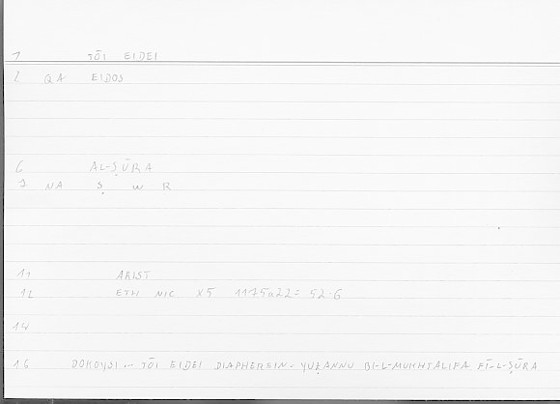 1 TŌI EIDEI
2 QA EIDOS
6 AL-ṢŪRA
9 NA Ṣ W R
11 ARIST
12 ETH NIC X5 1175a22 = 52.6
14
16 DOKOYSI .. TŌI EIDEI DIAPHEREIN - YUẒANNU BI-L-MUKHTALIFA FĪ-L-ṢŪRA